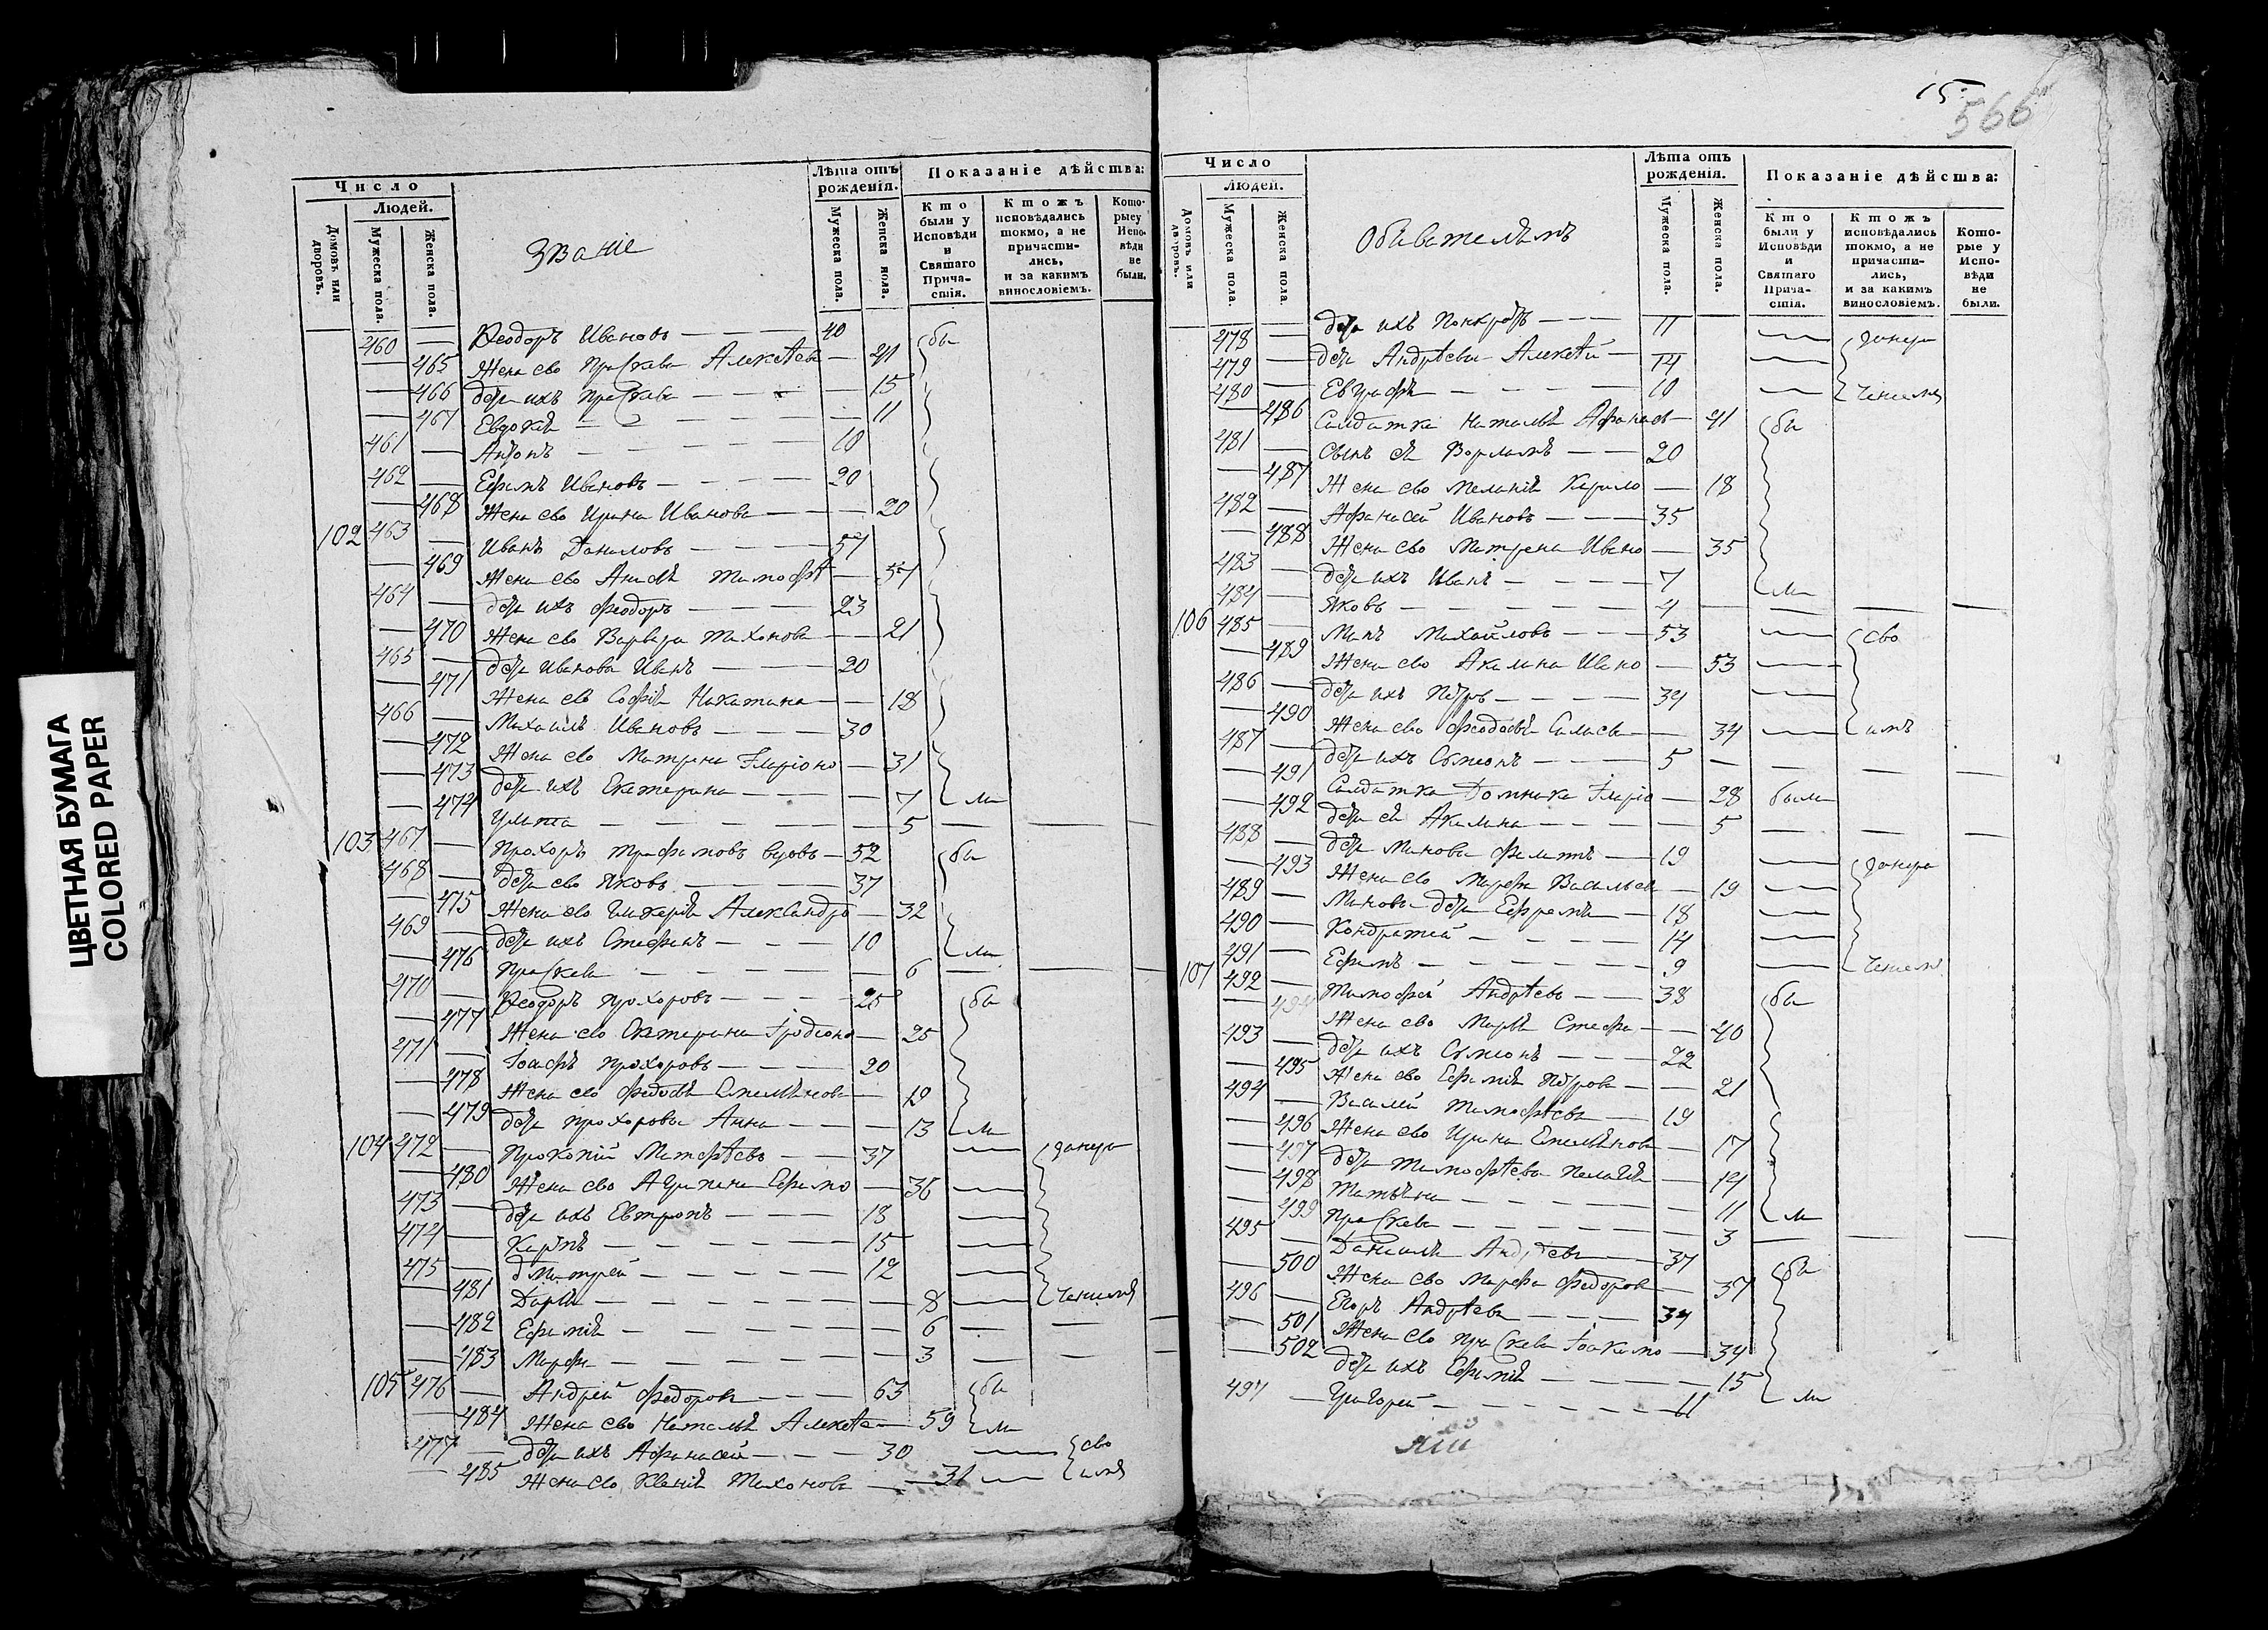 ЦВЕТНАЯ БУМАГА
COLORED PAPER
Число
Людей.
Домовъ или дворовъ.
Мужеска пола.
Женска пола.
Званіе
Лѣта отъ рожденія.
Мужеска пола.
Женска пола.
Показаніе дѣйства:
Кто были у Исповѣди и Святаго Причастія.
Ктожъ исповѣдались токмо, а не причастились, и за какимъ винословіемъ.
Которые у Исповѣди не были.
460 — Ѳеодоръ Ивановъ — — — 40 бы
— 465 Жена его Праскева Алексѣева — 41
— 466 дѣти ихъ Праскева — — — 15
— 467 Евдокея — — — — 11
461 — Антонъ — — — — 10
462 — Ефимъ Ивановъ — — — — 20
— 468 Жена его Ирина Иванова — — — 20
102 463 — Иванъ Даниловъ — — — — 57
— 469 Жена его Анисья Тимофѣ — 57
464 — дѣти ихъ Феодоръ — — — 23
— 470 Жена его Варвара Тихонова — — 21
465 — дѣти Иванова Иванъ — — — 20
— 471 Жена его Софія Никитина — — 18
466 — Михаилъ Ивановъ — — — 30
— 472 Жена его Матрена Iларіоно — 31
— 473 дѣти ихъ Екатерина — — — 7 ли
— 474 Улита — — — — — 5 — —
103 467 — Прохоръ Трифановъ вдовъ — 52 бы
468 — дѣти его Яковъ — — — — 37
— 475 Жена его Гликерія Александро — 32
469 — дѣти ихъ Стефанъ — — — 10 ли
— 476 Праскева — — — — 6 — — —
470 — Ѳеодоръ Прохоровъ — — — 25 бы
— 477 Жена его Екатерина Iродіоно — 25
471 — Iосифъ Прохоровъ — — — 20
— 478 Жена его Федосья Емельянова — 19
— 479 дѣти Прохорова Анна — — — 13 ли
104 472 — Прокопій Матфѣевъ — — 37 — данера
— 480 Жена его Агрипена Ефимо — 36 —
473 — дѣти ихъ Евтропъ — — — 18 —
474 — Карпъ — — — — 15 —
475 — Дмитрей — — — — 12 —
— 481 Дарья — — — — — 8 —
— 482 Ефимія — — — — — 6 — —
— 483 Марфа — — — — — 3 — —
105 476 — Андрей Федоровъ — — — 63 бы
— 484 Жена его Наталья Алексѣе — 59 ли
477 — дѣти ихъ Афанасей — — — 30 — сво
— 485 Жена его Ксенія Тихонова — — 31 —
15
566
Число
Людей.
Домовъ или дворовъ.
Мужеска пола.
Женска пола.
Обивателямъ
Лѣта отъ рожденія.
Мужеска пола.
Женска пола.
Показаніе дѣйства:
Кто были у Исповѣди и Святаго Причастія.
Ктожъ исповѣдались токмо, а не причастились, и за какимъ винословіемъ.
Которые у Исповѣди не были.
478 — дѣти ихъ Понкратъ — — — 11 — данера
479 — дѣти Андрѣевы Алексѣй — 14 —
480 — Евграфъ — — — — 10 —
— 486 Салдатка Наталья Афанась — 41 бы
481 — Сынъ ея Ворламъ — — 20
— 487 Жена его Меланія Кирило — 18
482 — Афанасей Ивановъ — — — 35
— 488 Жена его Матрена Ивано — 35
483 — дѣти ихъ Иванъ — — — 7 ли
484 — Яковъ — — — — — 4 — — —
106 485 — Минъ Михайловъ — — — 53 — сво
— 489 Жена его Акилина Ивано — 53 —
486 — дѣти ихъ Петръ — — — — 34 —
— 490 Жена его Феодосья Силаева — 34 —
487 — дѣти ихъ Сѵмеонъ — — — 5 — — —
— 491 Салдатка Домника Iларіо — 28 были
— 492 дѣти ея Акилина — — — — 5 — — —
488 — дѣти Минова Филатъ — 19 — данера
— 493 Жена его Марфа Васильев — 19 —
489 — Минова дѣти Ефремъ — 18 —
490 — Кондратей — — — — 14 —
491 — Ефимъ — — — — — 9 —
107 492 — Тимофей Андрѣевъ — — 38 бы
— 494 Жена его Марья Стефа — — 40
493 — дѣти ихъ Сѵмеонъ — — — 22
— 495 Жена его Ефимія Петрова — — 21
494 — Василей Тимофѣевъ — 19
— 496 Жена его Ирина Емельянова — 17
— 497 дѣти Тимофѣева Пелагія — 14
— 498 Татьяна — — — — — 11 ли
— 499 Праскева — — — — — 3 — — —
495 — Даниилъ Андрѣевъ — 37 бы
— 500 Жена его Марфа Федоров — 37
496 — Егоръ Андрѣевъ — — — 34
— 501 Жена его Праскева Iоакимо — 34
— 502 дѣти ихъ Ефимія — — — 15
497 — Григорей — — — — — 11 ли